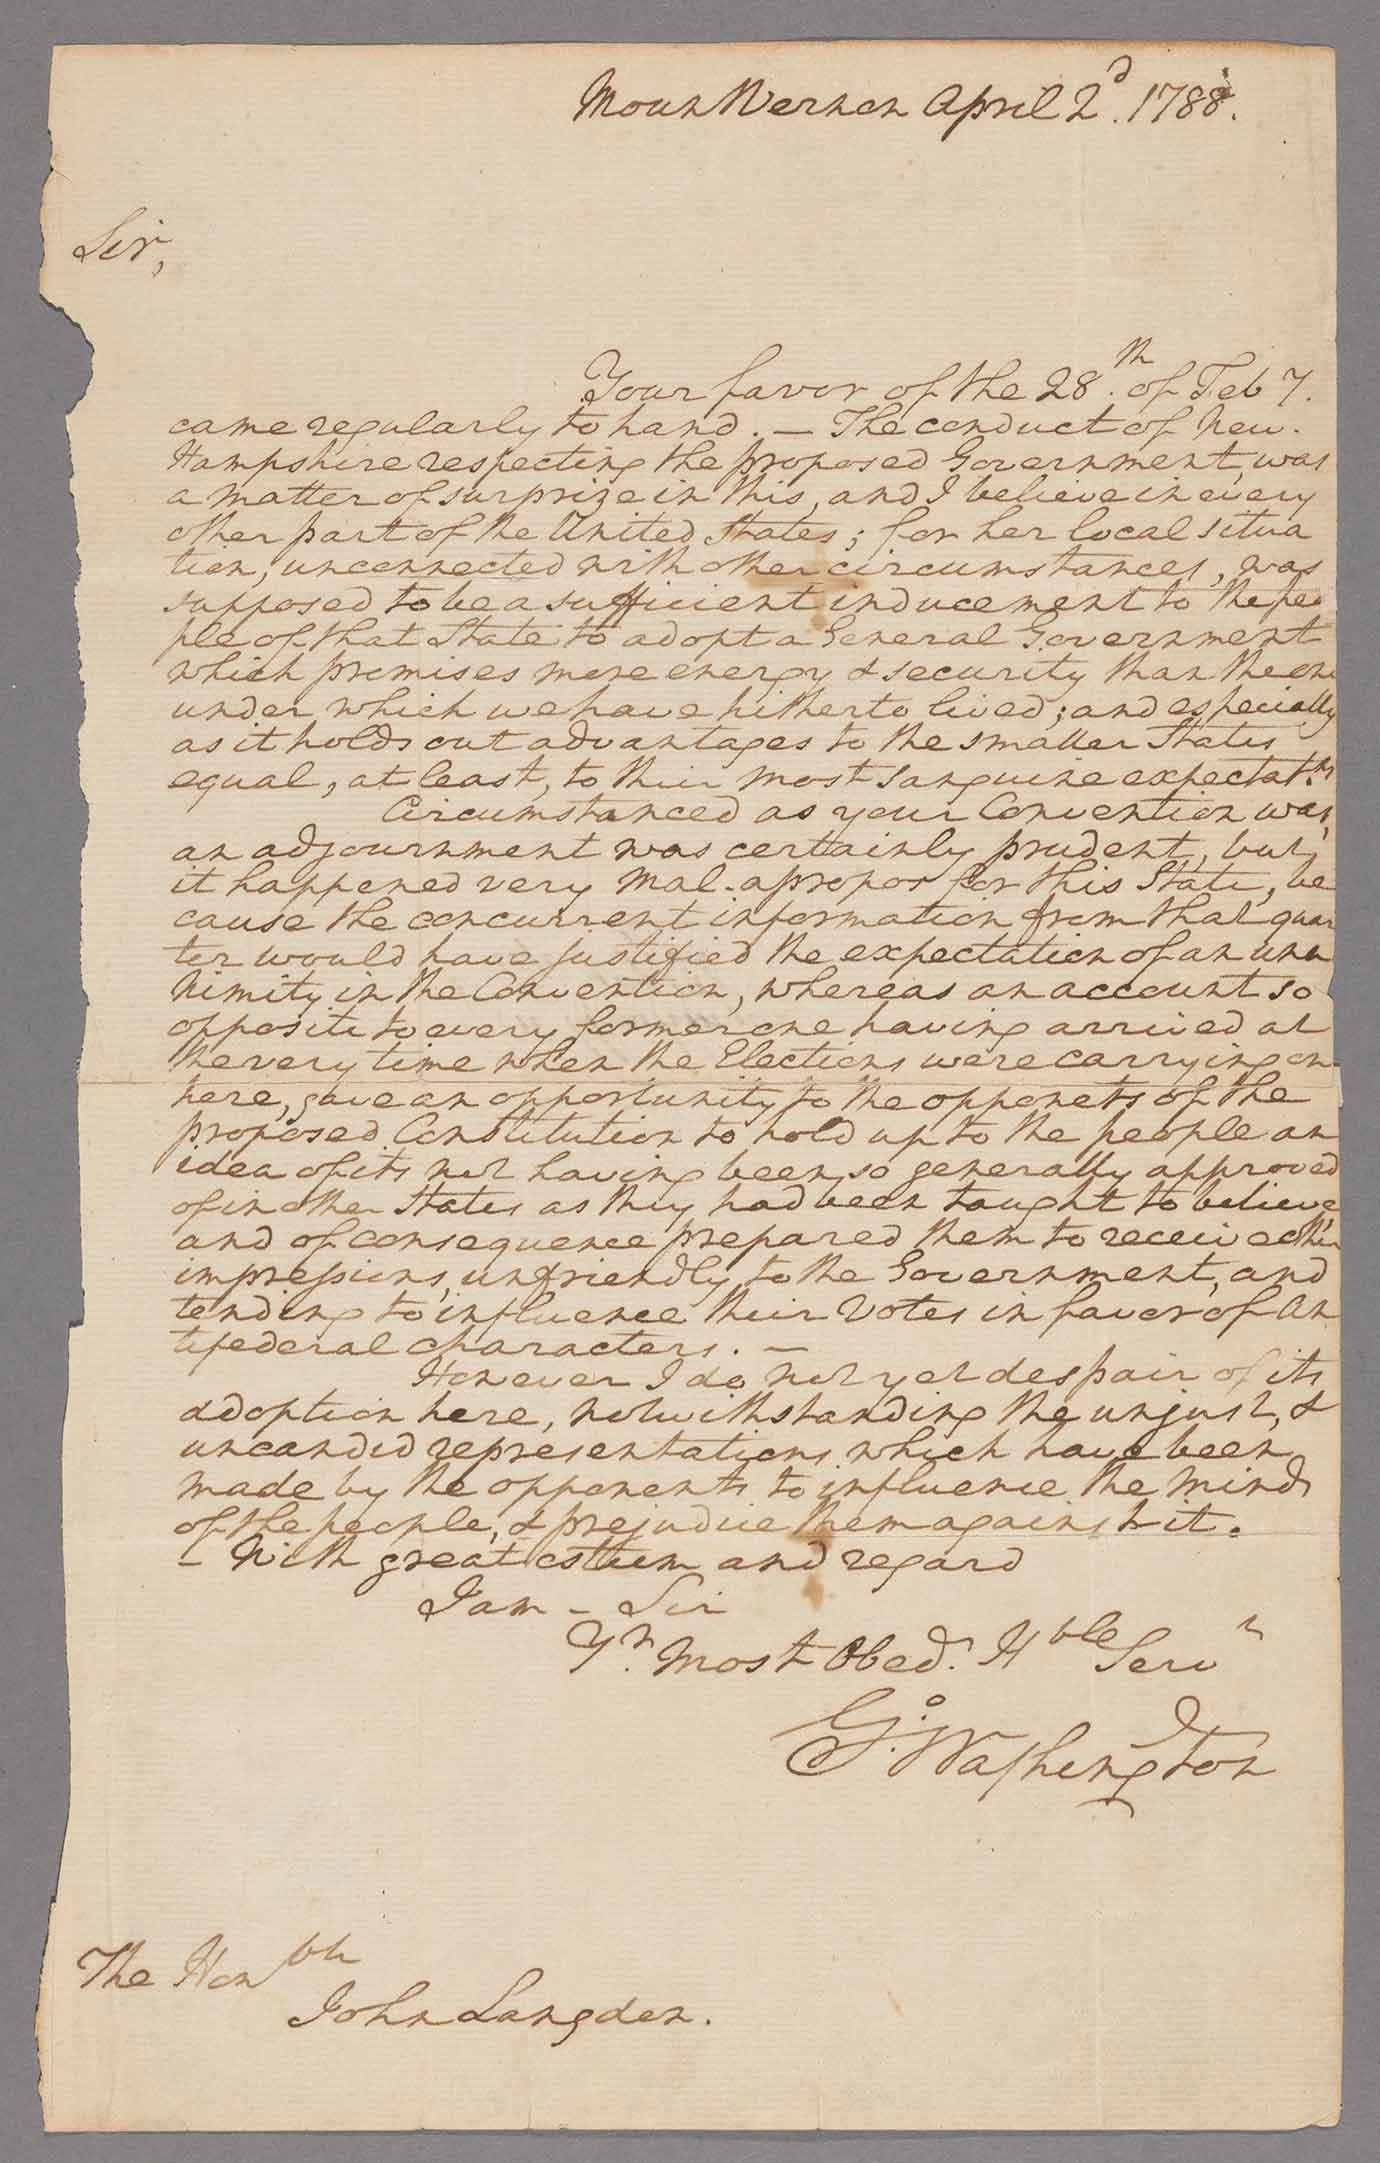 Mount Vernon April 2d. 1788.
Sir,
Your favor of the 28th. of Feby.
came regularly to hand. — The conduct of New-
Hampshire respecting the proposed Government, was
a matter of surprize in this, and I believe in every
other part of the United States; for her local situa
tion, unconnected with other circumstances, was
supposed to be a sufficient inducement to the peo
ple of that State to adopt a General Government
which promises more energy & security than the one
under which we have hitherto lived; and especially
as it holds out advantages to the smaller States
equal, at least, to their most sanguine expectatns.
Circumstanced as your Convention was,
an adjournment was certtainly prudent, but,
it happened very mal-apropos for this State, be
cause the concurrent information from that quar
ter would have justified the expectation of an una
nimity in the Convention, whereas an account so
opposite to every former one having arrived at
the very time when the Elections were carrying on
here, gave an opportunity to the opponets of the
proposed Constitution to hold up to the people an
idea of its not having been so generally approved
of in other States as they had been taught to believe,
and of consequence prepared them to receive other
impressions, unfriendly to the Government, and
tending to influence their Votes in favor of An
tifederal characters. —
However I do not yet despair of its
adoption here, notwithstanding the unjust, &
uncandid representations which have been
made by the opponents to influence the minds
of the people, & prejudice them against it.
– With great esteem and regard
I am – Sir
Yr. most Obedt. Hble Servt
Go: Washington
The Honble
John Langdon.